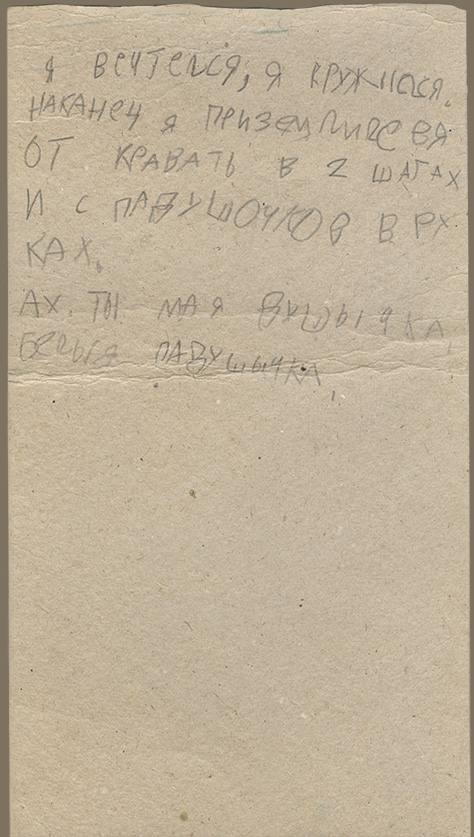 Я ВЕЧТЕЛСЯ, Я КРУЖИЛСЯ.
НАКАНЕЧ Я ПРИЗЕМЛИЛСЯ
ОТ КРАВАТЬ В 2 ШАГАХ
И С ПАДУШОЧКОВ В РХ
КАХ.
АХ. ТЫ МАЯ ДУШЫЧКА,
БЕЛЫЯ ПАДУШЫЧКА,